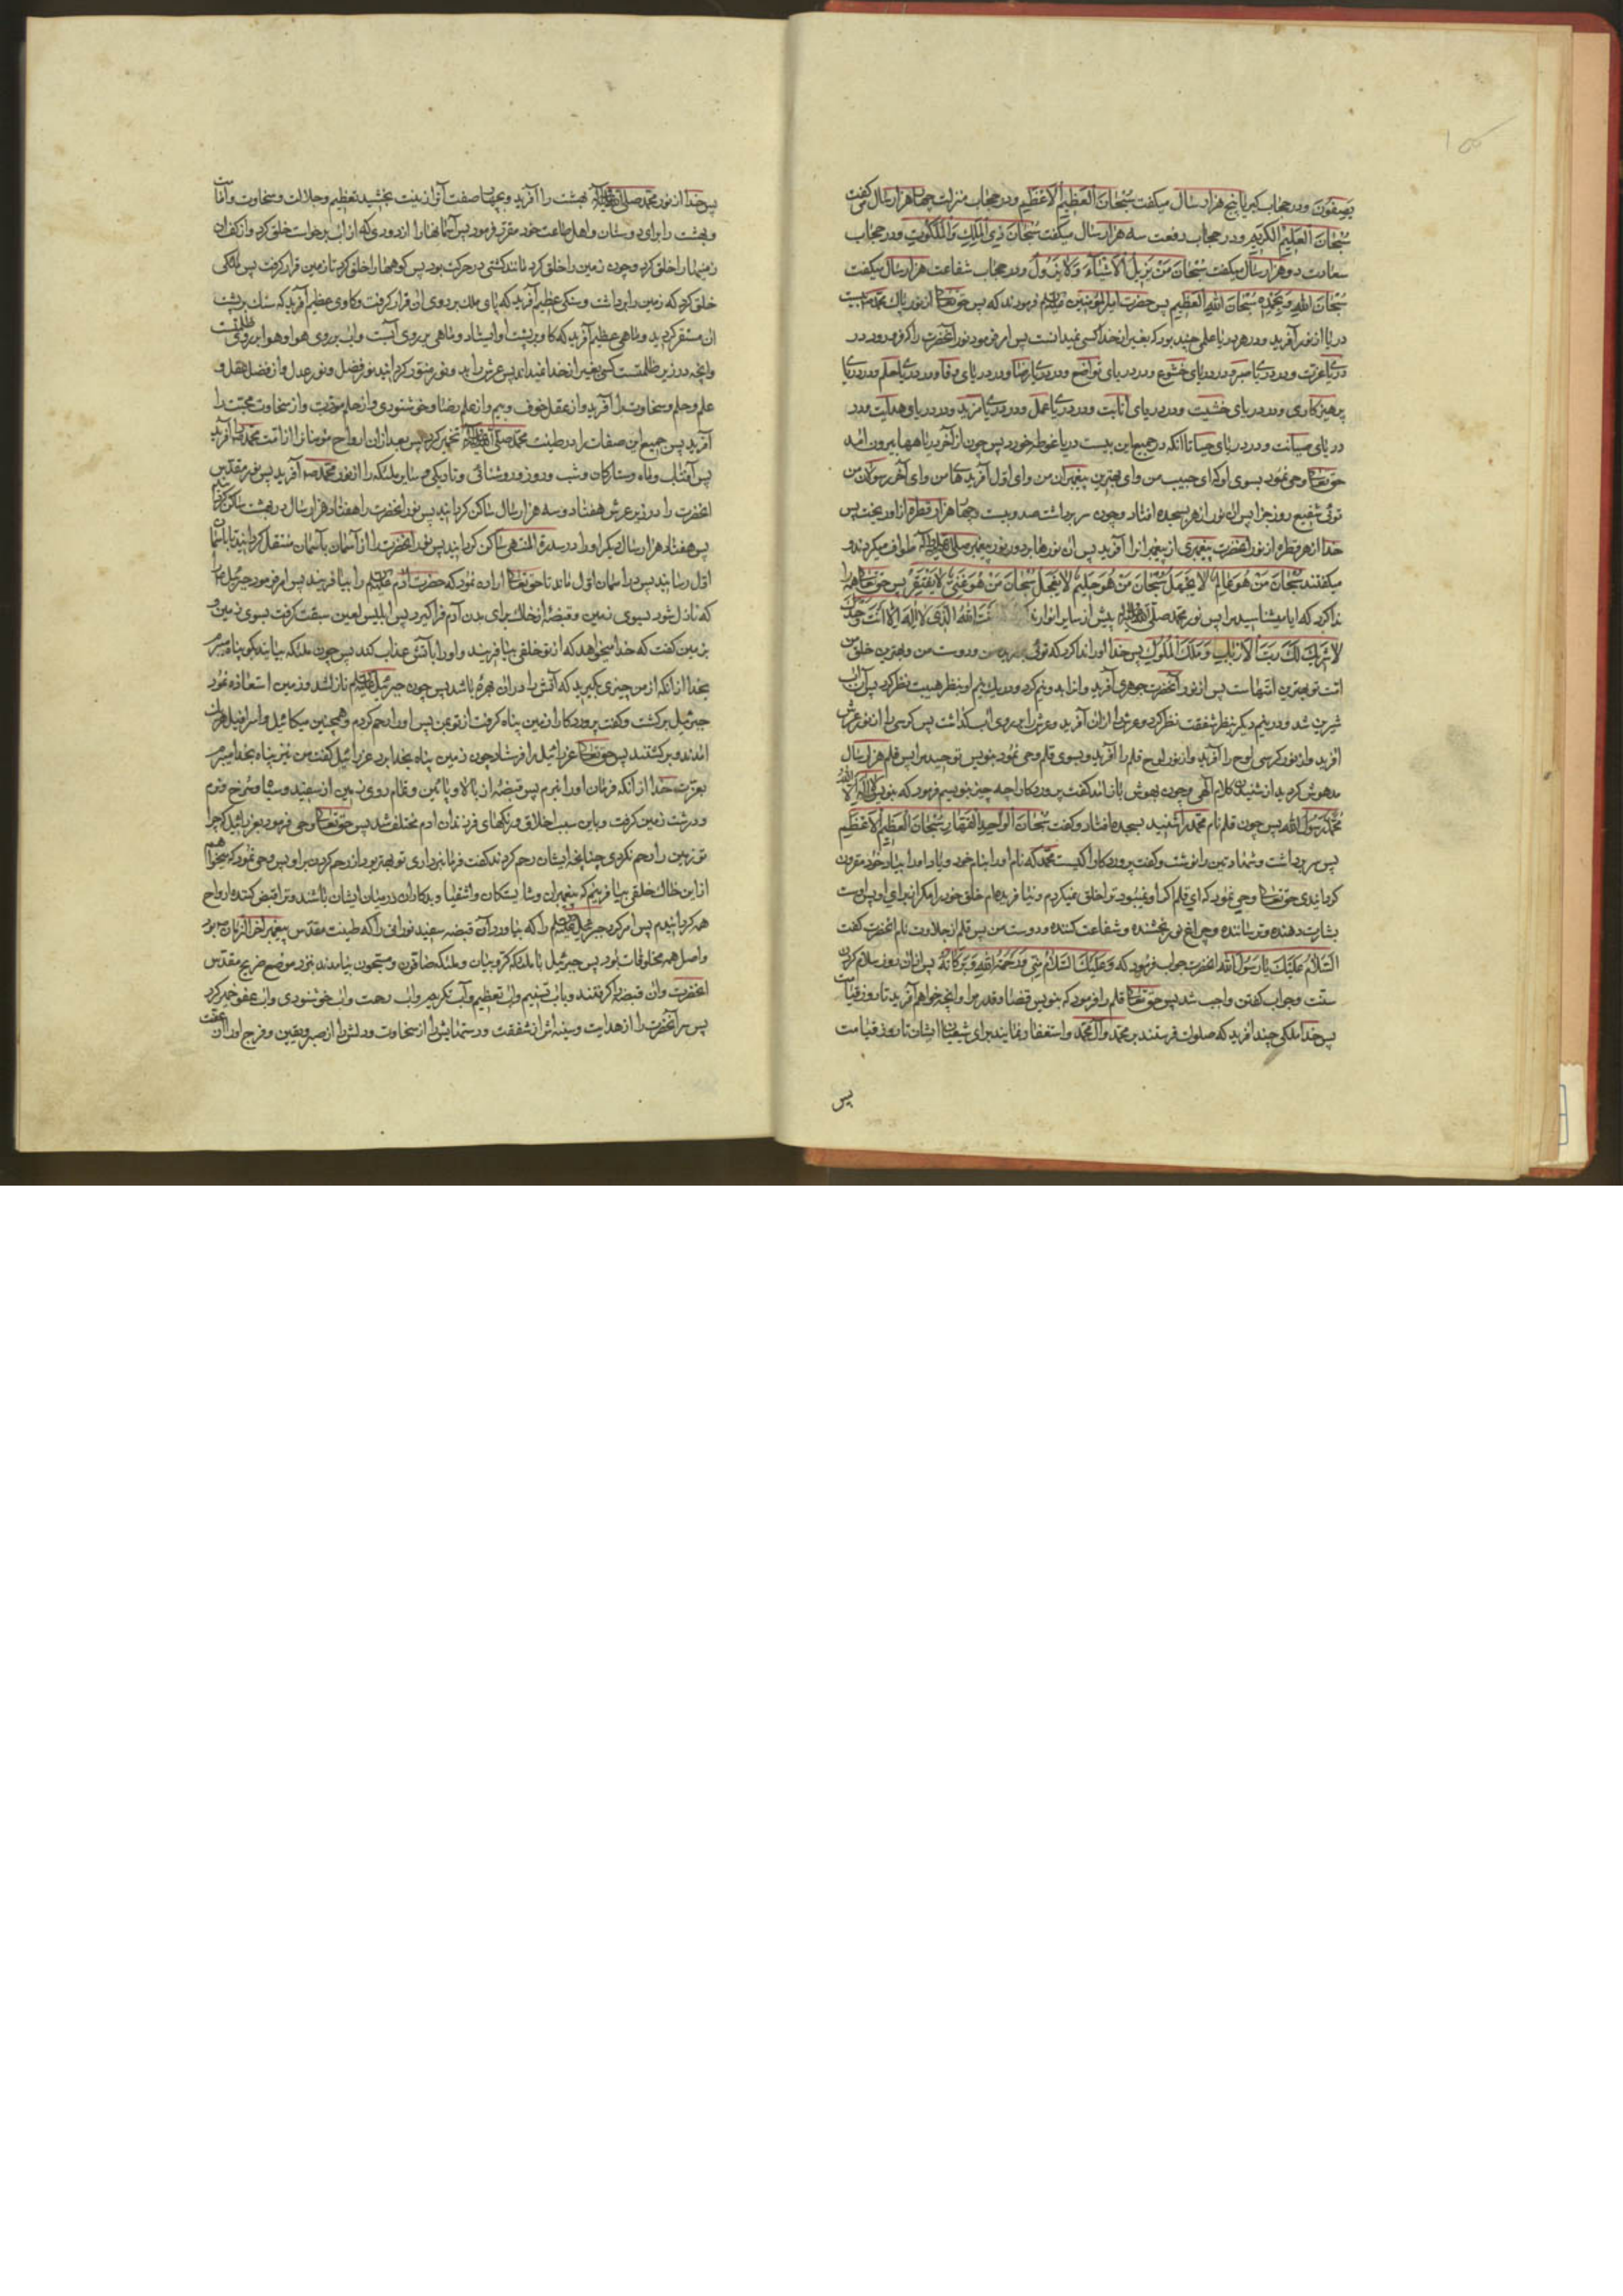 یصفون و در حجاب کبریا پنج هزار سال میکفت سُبْحَانَ الْعَظِیمِ الْاَعْظَمِ و در حجاب منزلت چهار هزار سال می کفت
سُبْحَانَ الْعَلِیمِ الْکَرِیمِ و در حجاب رفعت سه هزار سال میکفت سُبْحَانَ ذِی الْمُلْکِ وَالْمَلَکُوتِ و در حجاب
سعادت دو هزار سال میکفت سُبْحَانَ مَنْ یُزِیلُ الْاَشْیَاءَ وَلَا یَزُولُ و در حجاب شفاعت هزار سال میکفت
سُبْحَانَ اللهِ وَبِحَمْدِهِ سُبْحَانَ اللهِ الْعَظِیمِ پس حضرت امیر المؤمنین فرمودند که پس حق تعالی از نور پاک محمد بیست
دریا از نور آفرید و در هر دریا علمی چند بود که بغیر از خدا کسی نمیدانست پس امر فرمود نور آنحضرت را که فرو رود در
دریای عزت و در دریای صبر و در دریای خشوع و در دریای تواضع و در دریای رضا و در دریای وفا و در دریای حلم و در دریای
پرهیزکاری و در دریای خشیت و در دریای انابت و در دریای عمل و در دریای مزید و در دریای هدایت و در
دریای صیانت و در دریای حیا تا آنکه در جمیع این بیست دریا غوطه خورد پس چون از آخر دریاها بیرون آمد
حق تعالی وحی نمود بسوی او که ای حبیب من و ای بهترین پیغمبران من و ای اول آفریدهای من و ای آخر رسولان من
توئی شفیع روز جزا پس ان نور ازهر بسجده افتاد و چون سر برداشت صد و بیست و چهار هزار قطره از او ریخت پس
خدا از هر قطره از نور آنحضرت پیغمبری از پیغمبرانرا آفرید پس ان نورها بر دور نور پیغمبر طواف میکردند و
میکفتند سُبْحَانَ مَنْ هُوَ عَالِمٌ لَا یَجْهَلُ سُبْحَانَ مَنْ هُوَ حَلِیمٌ لَا یَعْجَلُ سُبْحَانَ مَنْ هُوَ غَنِیٌّ لَا یَفْتَقِرُ پس حق تعالی همه را
ندا کرد که ایا میشناسید مرا پس نور محمد پیش از سایر انوار ندا اَنْتَ اللهُ الَّذِی لَا اِلهَ اِلَّا اَنْتَ وَحْدَكَ
لَا شَرِیكَ لَكَ رَبُّ الْاَرْبَابِ وَمَلِكُ الْمُلُوكِ پس خدا او را ندا کرد که توئی من و دوست من و بهترین خلق من
امت تو بهترین امتهاست پس از نور آنحضرت جوهری آفرید و انرا بدو نیم کرد و در یک نیم او بنظر هیبت نظر کرد پس آن آب
شیرین شد و در نیم دیکر بنظر شفقت نظر کرد و عرش را از ان آفرید و عرش را بر روی آب کذاشت پس کرسی را از نور عرش
آفرید و از نور کرسی لوح را آفرید و از نور لوح قلم را آفرید و بسوی قلم وحی نمود بنویس توحید مرا پس قلم هزار سال
مدهوش کردید از شنیدن کلام الهی و چون بهوش باز امد کفت پروردکارا چه چیز بنویسم فرمود که بنویس لا اله الا الله
مُحَمَّدٌ رَسُولُ اللهِ پس چون قلم نام محمد را شنید بسجده افتاد و کفت سُبْحَانَ الْوَاحِدِ الْقَهَّارِ سُبْحَانَ الْعَظِیمِ الْاَعْظَمِ
پس سر برداشت و شهادتین را نوشت و کفت پروردکارا کیست محمد که نام او را بنام خود و یاد او را بیاد خود مقرون
کردانیدی حق تعالی وحی نمود که ای قلم اکر او نمیبود ترا خلق نمیکردم و نیافریدهام خلق خود را مکر از برای او پس اوست
بشارت دهنده و ترساننده و چراغ نور بخشنده و شفاعت کننده و دوست من پس قلم از حلاوت نام انحضرت کفت
اَلسَّلَامُ عَلَیْكَ یَا رَسُولَ اللهِ انحضرت جواب فرمود که وَعَلَیْكَ السَّلَامُ مِنِّی وَرَحْمَةُ اللهِ وَبَرَکَاتُهُ پس از ان روز سلام کردن
سنت و جواب کفتن واجب شد پس حق تعالی قلم را فرمود که بنویس قضا و قدر مرا و انچه خواهم آفرید تا روز قیامت
پس خدا ملکی چند آفرید که صلوات فرستند بر محمد و آل محمد و استغفار نمایند برای شیعیان ایشان تا روز قیامت
پس
پس خدا از نور محمد بهشت را آفرید و بچهار صفت آنرا زینت بخشید تعظیم و جلالت و سخاوت و امانت
و بهشت را برای دوستان و اهل طاعت خود مقرر فرمود پس آسمانها را از دودی که از اب برخاست خلق کرد و از کف ان
زمینها را خلق کرد و چون زمین را خلق کرد مانند کشتی در حرکت بود پس کوهها را خلق کرد تا زمین قرار کرفت پس ملکی
خلق کرد که زمین را برداشت و سنکی عظیم آفرید که پای ملک بر روی ان قرار کرفت و کاوی عظیم آفرید که سنک بر پشت
ان مستقر کردید و ماهی عظیم آفرید که کاو بر پشت او ایستاد و ماهی بر روی آبست و اب بر روی هوا و هوا بر روی ظلمت
و انچه در زیر ظلمتست کسی بغیر از خدا نمیداند پس عرش را بدو نور منور کردانید نور فضل و نور عدل و از فضل عقل و
علم و حلم و سخاوت را آفرید و از عقل خوف و بیم و از علم رضا و خوشنودی و از حلم مودت و از سخاوت محبت را
آفرید پس جمیع این صفات را در طینت محمد تخمیر کرد پس بعد از ان ارواح مؤمنانرا از امت محمد آفرید
پس آفتاب و ماه و ستارکان و شب و روز و روشنائی و تاریکی و سایر ملئکه را از نور محمد آفرید پس نور مقدس
انحضرت را در زیر عرش هفتاد و سه هزار سال ساکن کردانید پس نور انحضرت را هفتاد هزار سال در بهشت ساکن کردانید
پس هفتاد هزار سال دیکر او را در سدرة المنتهی ساکن کردانید پس نور انحضرت را از آسمان بآسمان منتقل کردانید تا باسمان
اول رسانید پس در اسمان اول ماند تا حق تعالی اراده نمود که حضرت آدم را بیافریند پس امر فرمود جبرئیل را
که نازل شود بسوی زمین و قبضه از خاک برای بدن آدم فرا کیرد پس ابلیس لعین سبقت کرفت بسوی زمین و
بزمین کفت که خدا میخواهد که از تو خلقی بیافریند و او را بآتش عذاب کند پس چون ملئکه بیایند بکو پناه میبرم
بخدا از انکه از من چیزی بکیرید که آتش را در ان بهره باشد پس چون جبرئیل نازل شد و زمین استعاذه نمود
جبرئیل برکشت و کفت پروردکارا زمین پناه کرفت از تو بمن پس او را رحم کردم و همچنین میکائیل و اسرافیل هر یک
امدند و برکشتند پس حق تعالی عزرائیل را فرستاد چون زمین پناه بخدا برد عزرائیل کفت من نیز پناه بخدا میبرم
بعزت خدا از انکه فرمان او را نبرم پس قبضه از بالا و پائین و تمام روی زمین از سفید و سیاه و سرخ و نرم
و درشت زمین کرفت و باین سبب اخلاق و رنکهای فرزندان ادم مختلف شد پس حق تعالی وحی فرمود بعزرائیل که چرا
تو زمین را رحم نکردی چنانچه ایشان رحم کردند کفت فرمانبرداری تو بهتر بود از رحم کردن بر او پس وحی نمود که میخواهم
از این خاک خلقی بیافرینم که پیغمبران و شایستکان و اشقیا و بدکاران در میان ایشان باشند و ترا قبض کننده ارواح
همه کردانیدم پس امر کرد جبرئیل را که بیاورد آن قبضه سفید نورانی را که طینت مقدس پیغمبر اخر الزمان بود
و اصل همه مخلوقات بود پس جبرئیل با ملئکه کروبیان و ملئکه صافون و مسبحون بیامدند بنزد موضع ضریح مقدس
انحضرت و ان قبضه را کرفتند و باب تسنیم و اب تعظیم و آب تکریم و اب رحمت و اب خوشنودی و اب عفو خمیر کرد
پس سر آنحضرت را از هدایت و سینه اش از شفقت و دستهایش را از سخاوت و دلش را از صبر و یقین و فرج او را از عفت